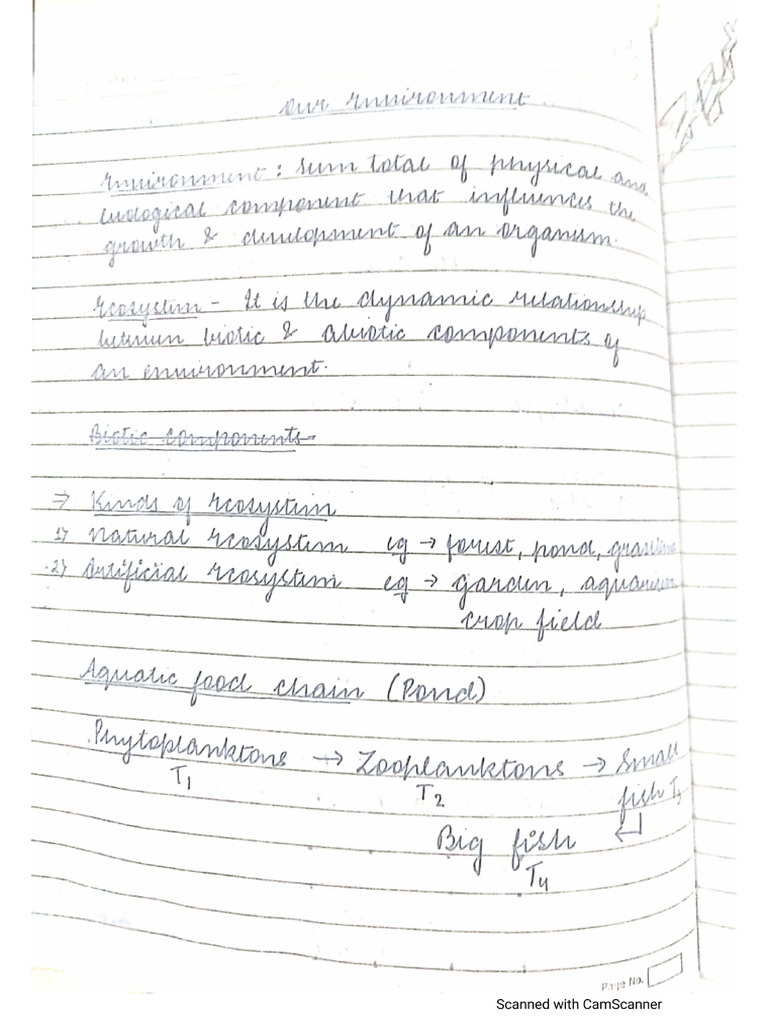 Our Environment
Environment : sum total of physical and
biological component that influences the
growth & development of an organism.
Ecosystem - It is the dynamic relationship
between biotic & abiotic components of
an environment.
Biotic components
→ Kinds of Ecosystem
1) Natural Ecosystem eg → forest, pond, grassland
2) Artificial Ecosystem eg → garden, aquarium
crop field
Aquatic food chain (Pond)
Phytoplanktons → Zooplanktons → Small
T1 T2 fish T3
Big fish
T4
Page No.
Scanned with CamScanner